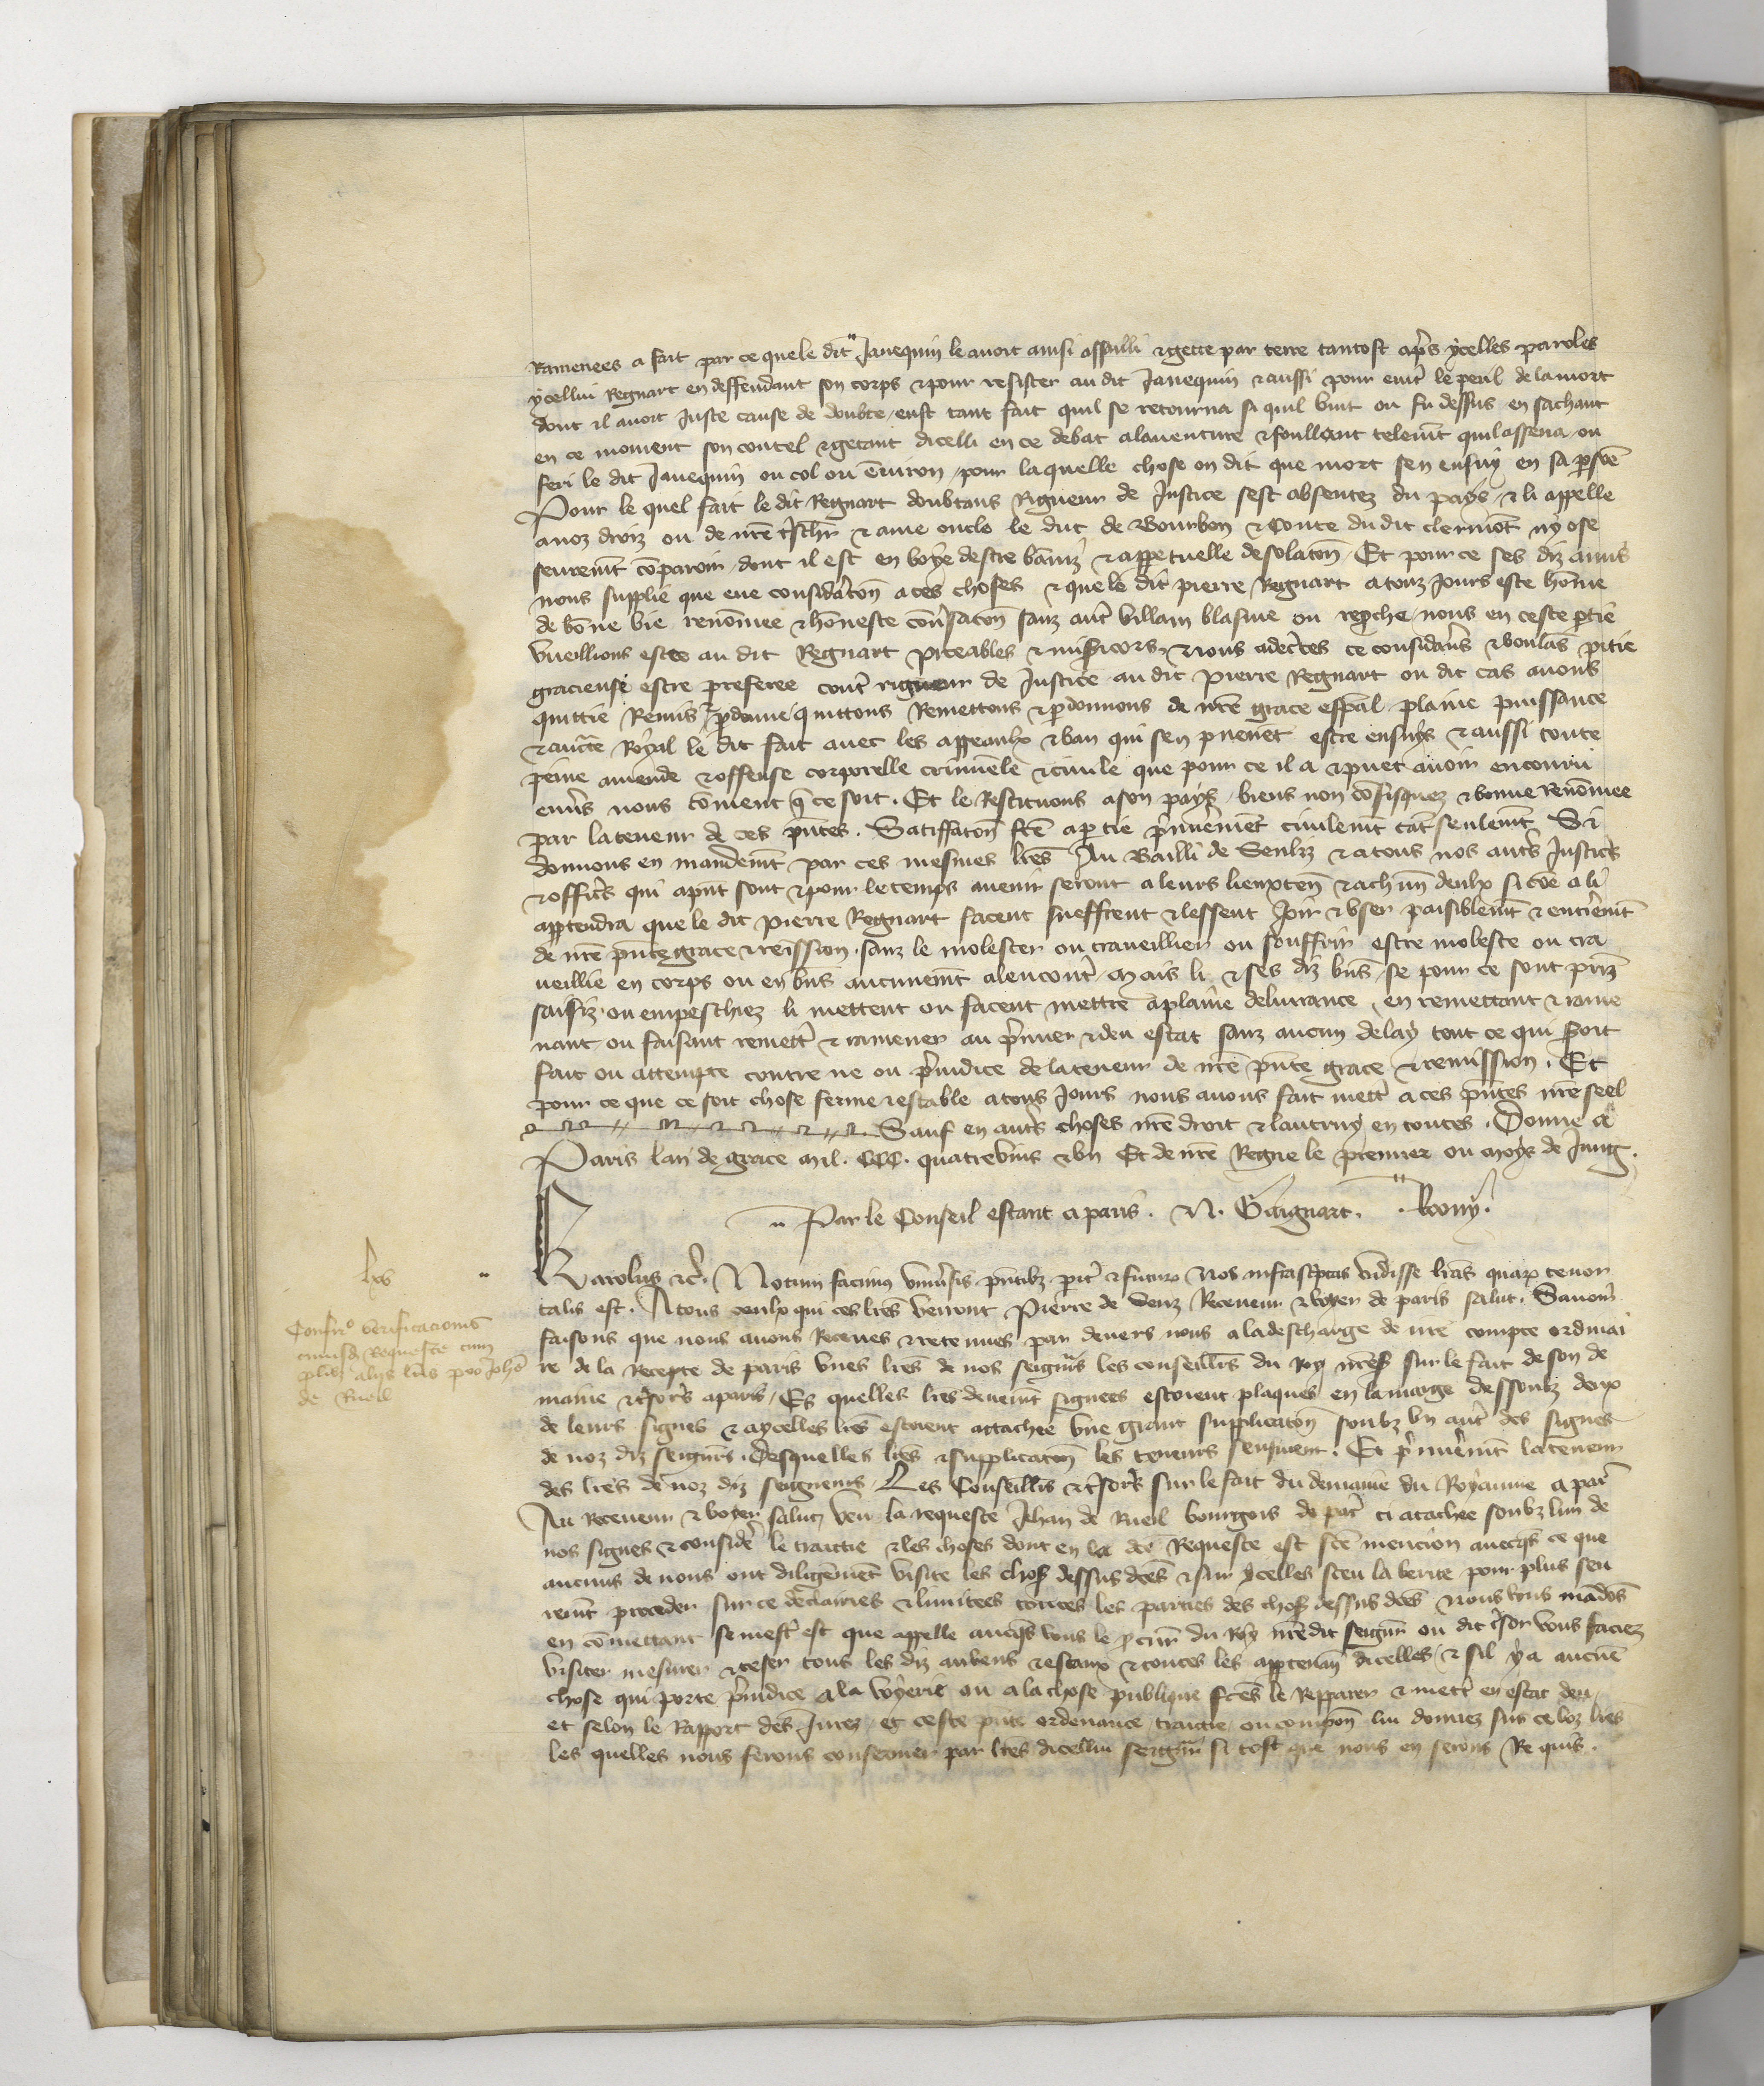 Ramenees a fait par ce que le dit Janequin le avoit ainsi assailli & gette par terre tantost apres ycelles paroles
ycellui Regnart en deffendant son corps & pour resister au dit Janequin & aussi pour evitr le peril de la mort
dont il avoit juste cause de doubte, eust tant fait quil se retourna si quil vint ou fu dessus en sachant
en ce moment son coutel & getant dicelli en ce debat alaventure & foullant telemt quil assena ou
feri le dit Janequin ou col ou environ, pour laquelle chose on dit que mort sen ensuy en sa psone
Pour le quel fait le dit Regnart doubtans Rigueur de Justice sest absentez du pays, & li appelle
a noz droiz ou de nre tschr & ame oncle le duc de Bourbon & Conte du dit clermot ny ose
seuremt coparoir, dont il est en voye destre baniz & a ppetuelle desolaton. Et pour ce ses diz amis
nous supplie que eue considaton a ces choses & que le dit pierre Regnart a touz jours este home
de bone vie renomee & honeste convsacon sanz autr villain blasme ou repche, nous en ceste ptie
vueillions estre au dit Regnart piteables & misicors, & nous adectes ce considans & voulas pitie
gracieuse estre preferee contr rigueur de Justice au dit pierre Regnart ou dit cas avons
quittie Remis & pdonne quittons Remettons & pdonnons de nre grace espal plaine puissance
& aucte Royal le dit fait avec les appeaulx & ban qui sen puenet estre ensuys & aussi toute
peine amende & offense corporelle criminele & civile que pour ce il a & puet avoir encouru
envs nous coment q ce soit. Et le Restituons a son pays, biens non cofisquez & bonne renomee
par la teneur de ces pntes. Satiffaton fte a ptie pmieremet civilemt tat seulemt Si
donnons en mandemt par ces mesmes lres Au Bailli de Senliz & a tous nos autrs Justicrs
& officrs qui a pnt sont & pour le temps avenir seront a leurs lieuxten & a chun deulx si coe a li
apptendra que le dit pierre Regnart facent sueffrent & lessent Joir & user paisiblemt & entieremt
de nre pnte grace & reission sanz le molester ou traveillier ou souffrir estre moleste ou tra
veillie en corps ou en bns aucunemt alencontr, Mais li & ses diz bns, se pour ce sont priz
saisiz ou empeschiez li mettent ou facent mettre a plaine delivrance, en remettant & rame
nant ou faisant remettr & ramener au pmier & deu estat sanz aucun delay tout ce qui soit
fait ou attempte contre ne ou prejudice de la teneur de nre pnte grace & remission. Et
pour ce que ce soit chose ferme & estable a tous Jours nous avons fait mettr a ces pntes nre seel
Sauf en autrs choses nre droit & lautruy en toutes. Donne a
Paris lan de grace mil. CCC. quatrevins & un Et de nre Regne le premier ou moys de Juing.
Par le Conseil estant a paris. N. Gaignart. Roony.
lxs
Karolus &c. Notum facimus univsis pntibz pitr & futuris Nos infrascptas vidisse lras quarx tenor
talis est. A tous ceulx qui ces lres verront Pierre de Senz Receveur & voyer de paris salut. Savoir
Confiro verificacionis
cuiusd Requeste cum
plibz aliis lris pro Johe
de Rueil
faisons que nous avons Receues & retenues par devers nous a la descharge de nre compte ordinai
re de la Recepte de paris unes lres de nos seigneurs les conseillrs du Roy nres sur le fait de son de
maine & tsorrs a paris, Es quelles lres deuemt signees estoient plaques en la marge dessoubz deux
de leurs signes & a ycelles lres estoient attachee une grant supplicaton soubz un autr des signes
de noz diz seigneurs, Desquelles lres & supplicaton les teneurs sensuient. Et pmieremt la teneur
des lres de noz diz seigneurs, Les Conseillrs & tsorrs sur le fait du demaine du Royaume a par
Au Receveur & voyer salut, veu la requeste Jehan de Rueil bourgois de par ci atachee soubz lun de
nos signes & considere le traictie & les choses dont en la dce Requeste est fce mencion avecqs ce que
aucuns de nous ont diligemmet visite les choses dessus dces & sur ycelles sceu la verite, pour plus seu
remt proceder sur ce declairies & limitees toutes les parties des choses dessus dces Nous vous madons
en comettant se mestr est que appelle avecqs vous le pcur du Roy nre dit seigneur ou dit tsor vous faciez
visiter mesurer & teser tous les diz auvens & estaux & toutes les apptenan dicelles, & sil y a aucune
chose qui porte prejudice a la voyerie ou a la chose publique fces le Repparer & mettr en estat deu,
et selon le Rapport des Jurez, et ceste pnte ordenance, traictie, ou compon lui donnez sur ce voz lres
les quelles nous ferons confermer par lres dicellui seigneur si tost que nous en serons Requis.